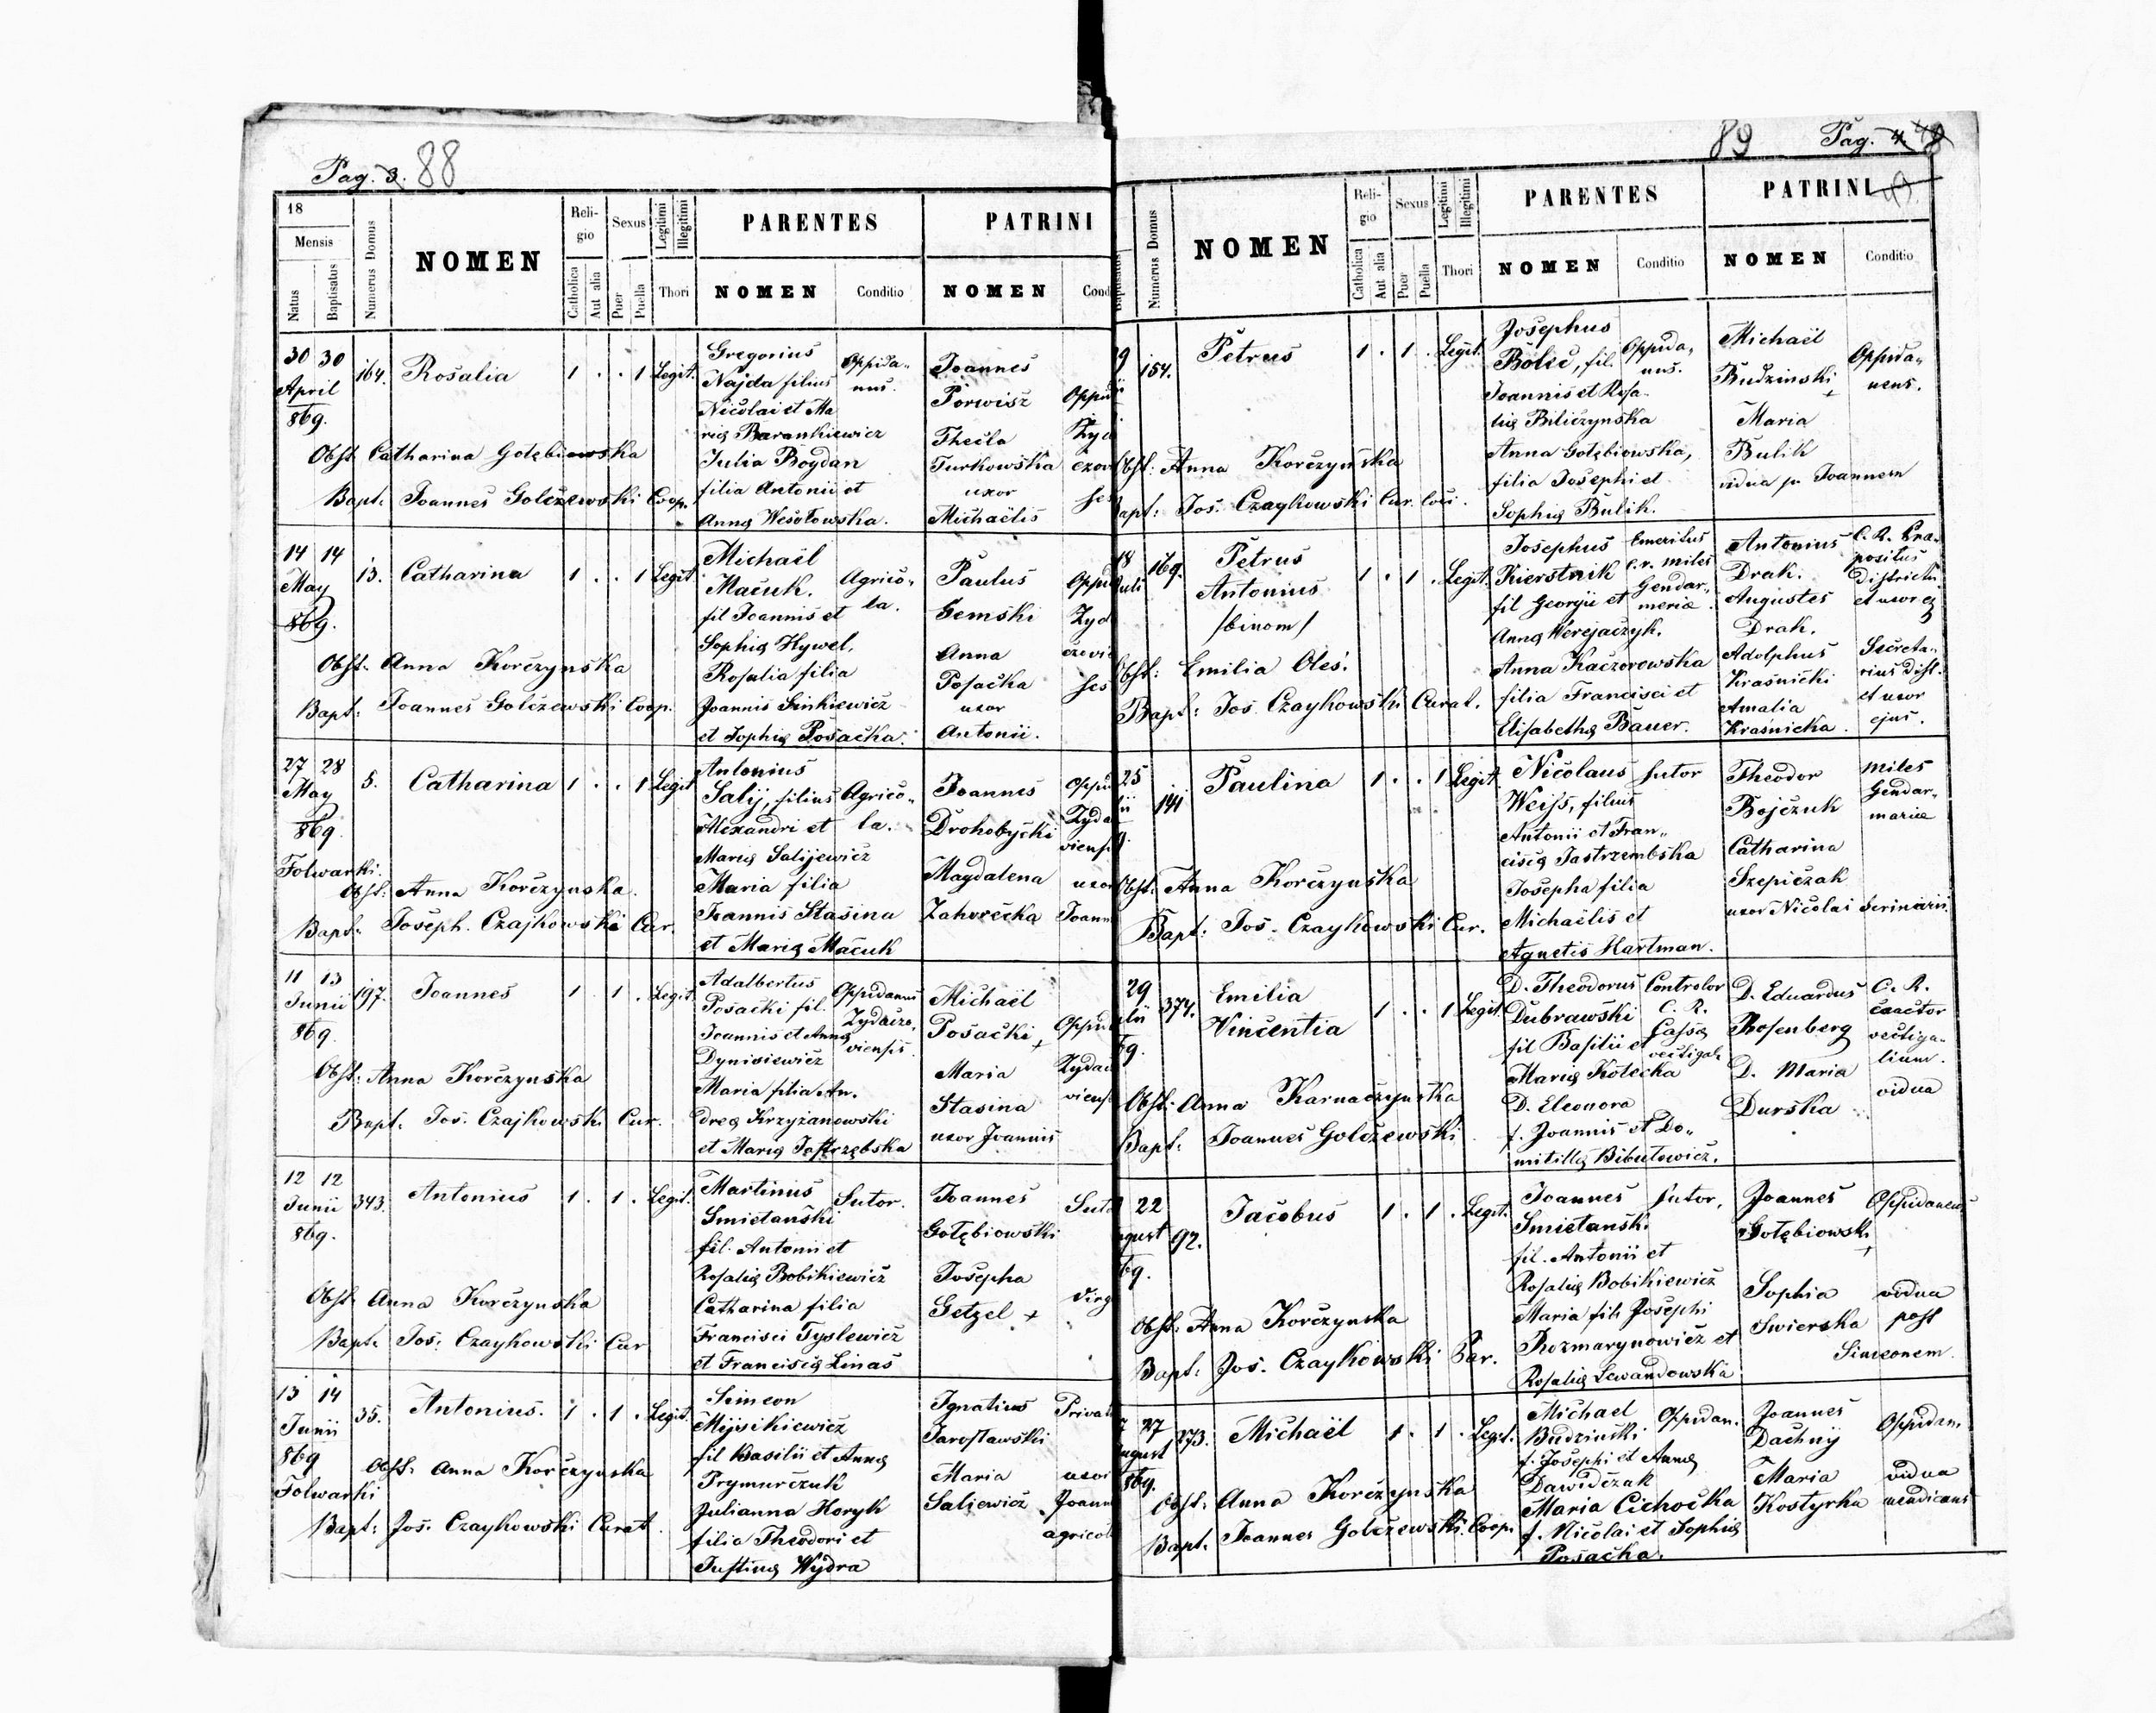 Pag. 3. 88
18
Mensis
Natus
Baptisatus
Numerus Domus
NOMEN
Religio
Catholica
Aut alia
Sexus
Puer
Puella
Legitimi
Illegitimi
Thori
PARENTES
NOMEN
Conditio
PATRINI
NOMEN
Cond
30 30
April
869.
164.
Rosalia
1 . . 1 Legit.
Gregorius
Najda filius
Nicolai et Ma
riae Barankiewicz
Julia Bogdan
filia Antonii et
Annae Wesołowska.
Oppida„
nus.
Joannes
Porwisz
Thecla
Turkowska
uxor
Michaëlis
Obst. Catharina Gołębiowska
Bapt. Joannes Golczewski Coop.
14 14
May
869.
13.
Catharina
1 . . 1 Legit.
Michaël
Macuk.
fil Joannis et
Sophiae Hywel,
Rosalia filia
Joannis Sinkiewicz
et Sophiae Posacka.
Agrico„
la.
Paulus
Semski
Anna
Posacka
uxor
Antonii.
Obst. Anna Korczynska
Bapt. Joannes Golczewski Coop.
27 28
May
869.
Folwarki.
5.
Catharina
1 . . 1 Legit
Antonius
Salij, filius
Alexandri et
Mariae Salijewicz
Maria filia
Joannis Stasina
et Mariae Macuk
Agrico„
la.
Joannes
Drohobycki
Magdalena
Zahorecka
Obst: Anna Korczynska.
Bapt. Joseph. Czajkowski Cur.
11 13
Junii
869
197.
Joannes
1 . 1 . Legit.
Adalbertus
Posacki fil.
Joannis et Annae
Dynisiewicz
Maria filia An„
dreae Krzyżanowski
et Mariae Jastrzębska
Oppidanus
Zydaczo„
viensis.
Michaël
Posacki +
Maria
Stasina
uxor Joannis
Obst: Anna Korczynska
Bapt. Jos. Czajkowski Cur.
12 12
Junii
869.
343.
Antonius
1 . 1 . Legit.
Martinus
Smietanski
fil. Antonii et
Rosaliae Bobikiewicz
Catharina filia
Francisci Tyslewicz
et Franciscae Linas
Sutor.
Joannes
Gołębiowski
Josepha
Getzel +
Obst. Anna Korczynska
Bapt. Jos: Czaykowski Cur
13 14
Junii
869
Folwarki
35.
Antonius.
1 . 1 . Legit.
Simeon
Mijsikiewicz
fil Basilii et Annae
Prymurczuk
Julianna Horyk
filia Theodori et
Justinae Wydra
Ignatius
Jarosławski
Maria
Saliewicz
uxor
Obst. Anna Korczynska
Bapt: Jos. Czaykowski Curat.
89 Pag. 4.
Numerus Domus
NOMEN
Religio
Catholica
Aut alia
Sexus
Puer
Puella
Legitimi
Illegitimi
Thori
PARENTES
NOMEN
Conditio
PATRINI
NOMEN
Conditio
154.
Petrus
1 . 1 . Legit.
Josephus
Bolic, fil.
Joannis et Rosa„
liae Biliczynska
Anna Gołębiowska,
filia Josephi et
Sophiae Bulik.
Oppida„
nus.
Michaël
Budzinski +
Maria
Bulik
vidua p. Joannem
Oppida„
neus.
Obst: Anna Korczynska
Bapt: Jos. Czaykowski Cur. loci.
18
169.
Petrus
Antonius
/binom/
1 . 1 . Legit.
Josephus
Kierstnik
fil Georgii et
Annae Werejaczyk.
Anna Kaczorewska
filia Francisci et
Elisabethae Bauer.
Emeritus
c.r. miles
Gendar„
meriae.
Antonius
Drak.
Augustes
Drak.
Adolphus
Krasnicki
Amalia
Krasnicka.
C. R. Pra„
positus
Districtu
et uxor ej
Secreta„
rius Dist.
et uxor
ejus.
Obst: Emilia Oleś.
Bapt: Jos. Czaykowski Curat.
25
141
Paulina
1 . . 1 Legit.
Nicolaus
Weiss, filius
Antonii et Fran„
ciscae Jastrzembska
Josepha filia
Michaëlis et
Agnetis Hartman.
sutor
Theodor
Bojczuk
Catharina
Szepiczak
uxor Nicolai scriniarii.
miles
Gendar„
mariae
Obst. Anna Korczynska
Bapt: Jos. Czaykowski Cur.
29
374.
Emilia
Vincentia
1 . . 1 Legit.
D. Theodorus
Dubrawski
fil Basilii et
Mariae Kotecka
D. Eleonora
f. Joannis et Do„
mitillae Bibutowicz.
Controlor
C. R.
Cassae
vectigal.
D. Eduardus
Rosenberg
D. Maria
Durska
C. R.
Exactor
vectiga„
lium.
vidua
Obst. Anna Karnaczynska
Bapt. Joannes Golczewski.
22
92.
Jacobus
1 . 1 . Legit.
Joannes
Smietanski
fil. Antonii et
Rosaliae Bobikiewicz
Maria fili Josephi
Rozmarynowicz et
Rosaliae Lewandowska
sutor,
Joannes
Gołębiowski +
Sophia
Swierska
Oppidaneus
vidua
post
Simeonem.
Obst. Anna Korczynska
Bapt: Jos. Czaykowski Par.
27
273.
869.
Michaël
1 . 1 . Legit.
Michael
Budzinski
f. Josephi et Annae
Dawidczak
Maria Cichocka
f. Nicolai et Sophiae
Posacka.
Oppidan.
Joannes
Dachnij
Maria
Kostyrka
Oppidan.
vidua
mendicans
Obst: Anna Korczynska
Bapt. Joannes Golczewski. Coop.